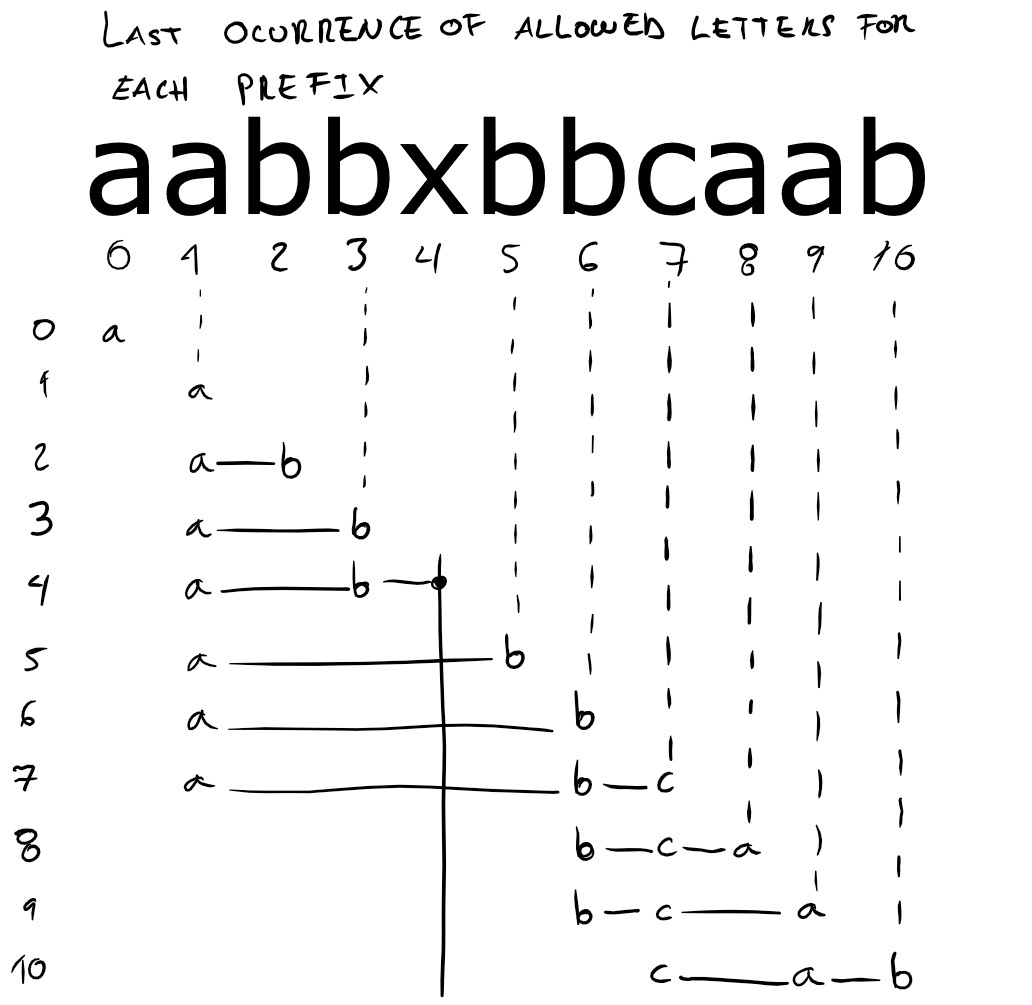 LAST OCURRENCE OF ALLOWED LETTERS FOR
EACH PREFIX
aabbxbbcaab
0 1 2 3 4 5 6 7 8 9 10
0 a
1 a
2 a b
3 a b
4 a b
5 a b
6 a b
7 a b c
8 b c a
9 b c a
10 c a b